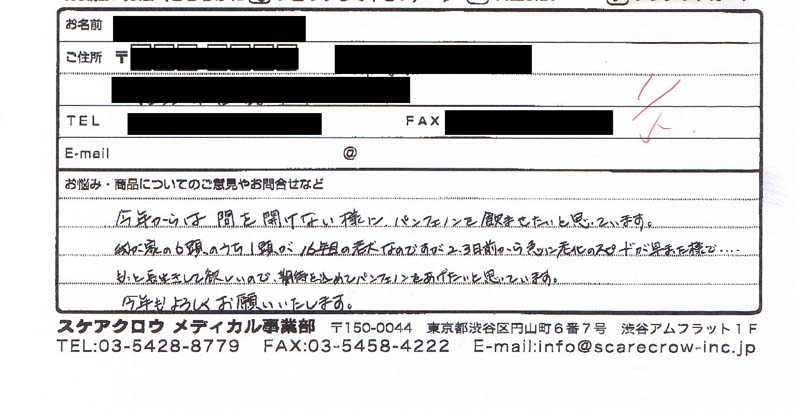 お名前
ご住所 〒
TEL FAX
E-mail @
お悩み・商品についてのご意見やお問合せなど
今年からは間を開けない様に、パンフェノンを飲ませたいと思っています。
我が家の6頭のうち1頭が16年目の老犬なのですが2.3日前から急に老化のスピードが早まった様で‥‥
もっと長生きして欲しいので、期待を込めてパンフェノンをあげたいと思っています。
今年もよろしくお願いいたします。
スケアクロウ メディカル事業部 〒150-0044 東京都渋谷区円山町6番7号 渋谷アムフラット1F
TEL:03-5428-8779 FAX:03-5458-4222 E-mail:info@scarecrow-inc.jp